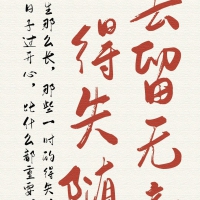 去留无意
得失随
生那么长，那些一时的得失，
日子过开心，比什么都重要